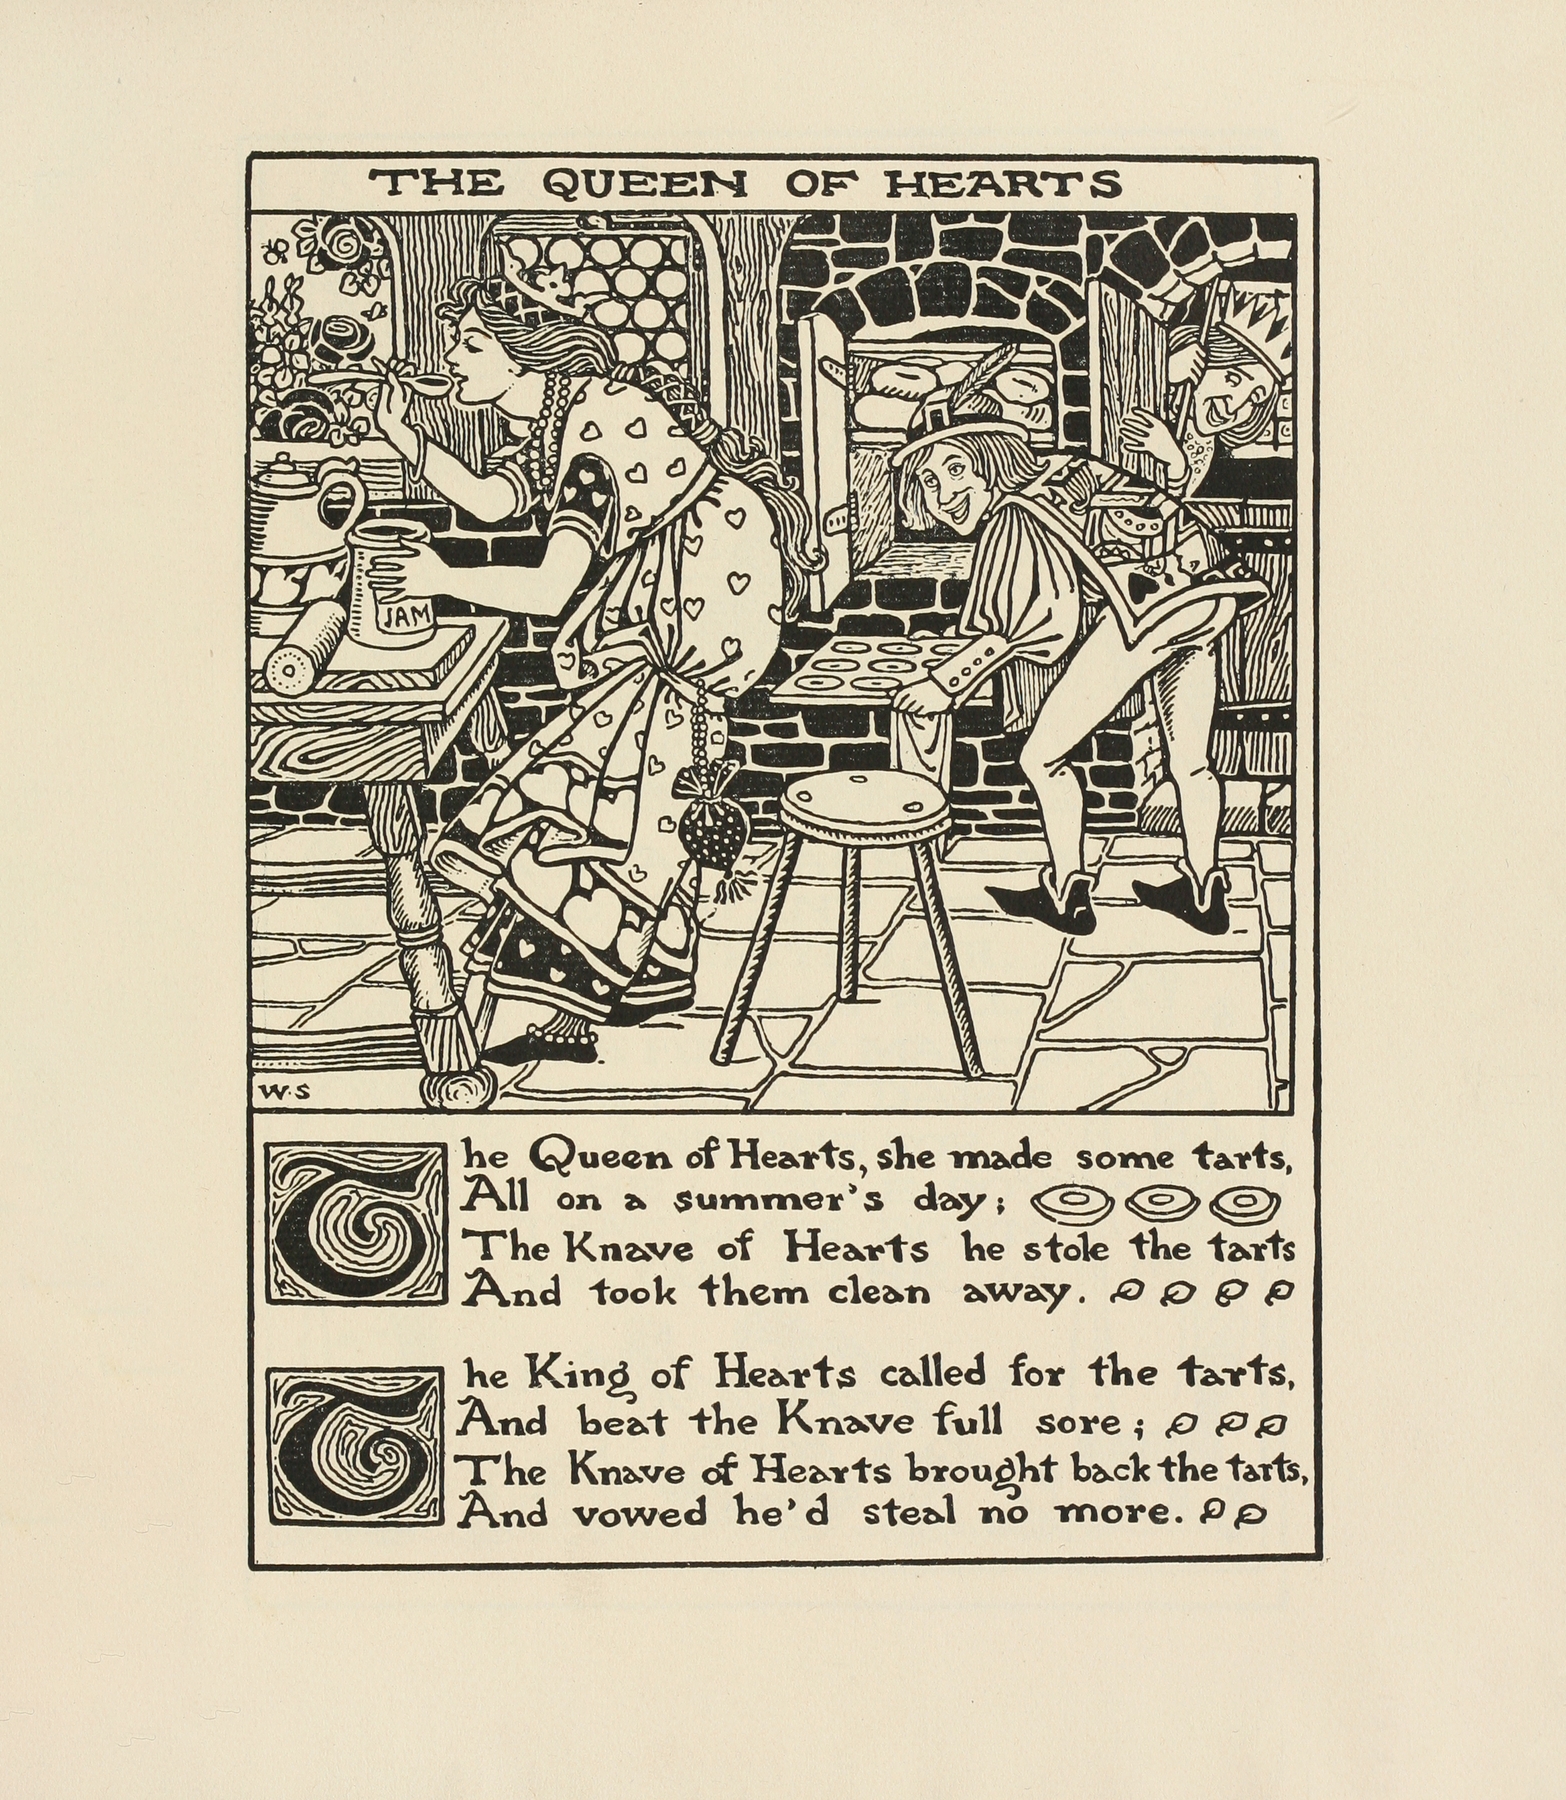 THE QUEEN OF HEARTS
JAM
W.S
The Queen of Hearts, she made some tarts,
All on a summer's day;
The Knave of Hearts he stole the tarts
And took them clean away.
The King of Hearts called for the tarts,
And beat the Knave full sore;
The Knave of Hearts brought back the tarts,
And vowed he'd steal no more.